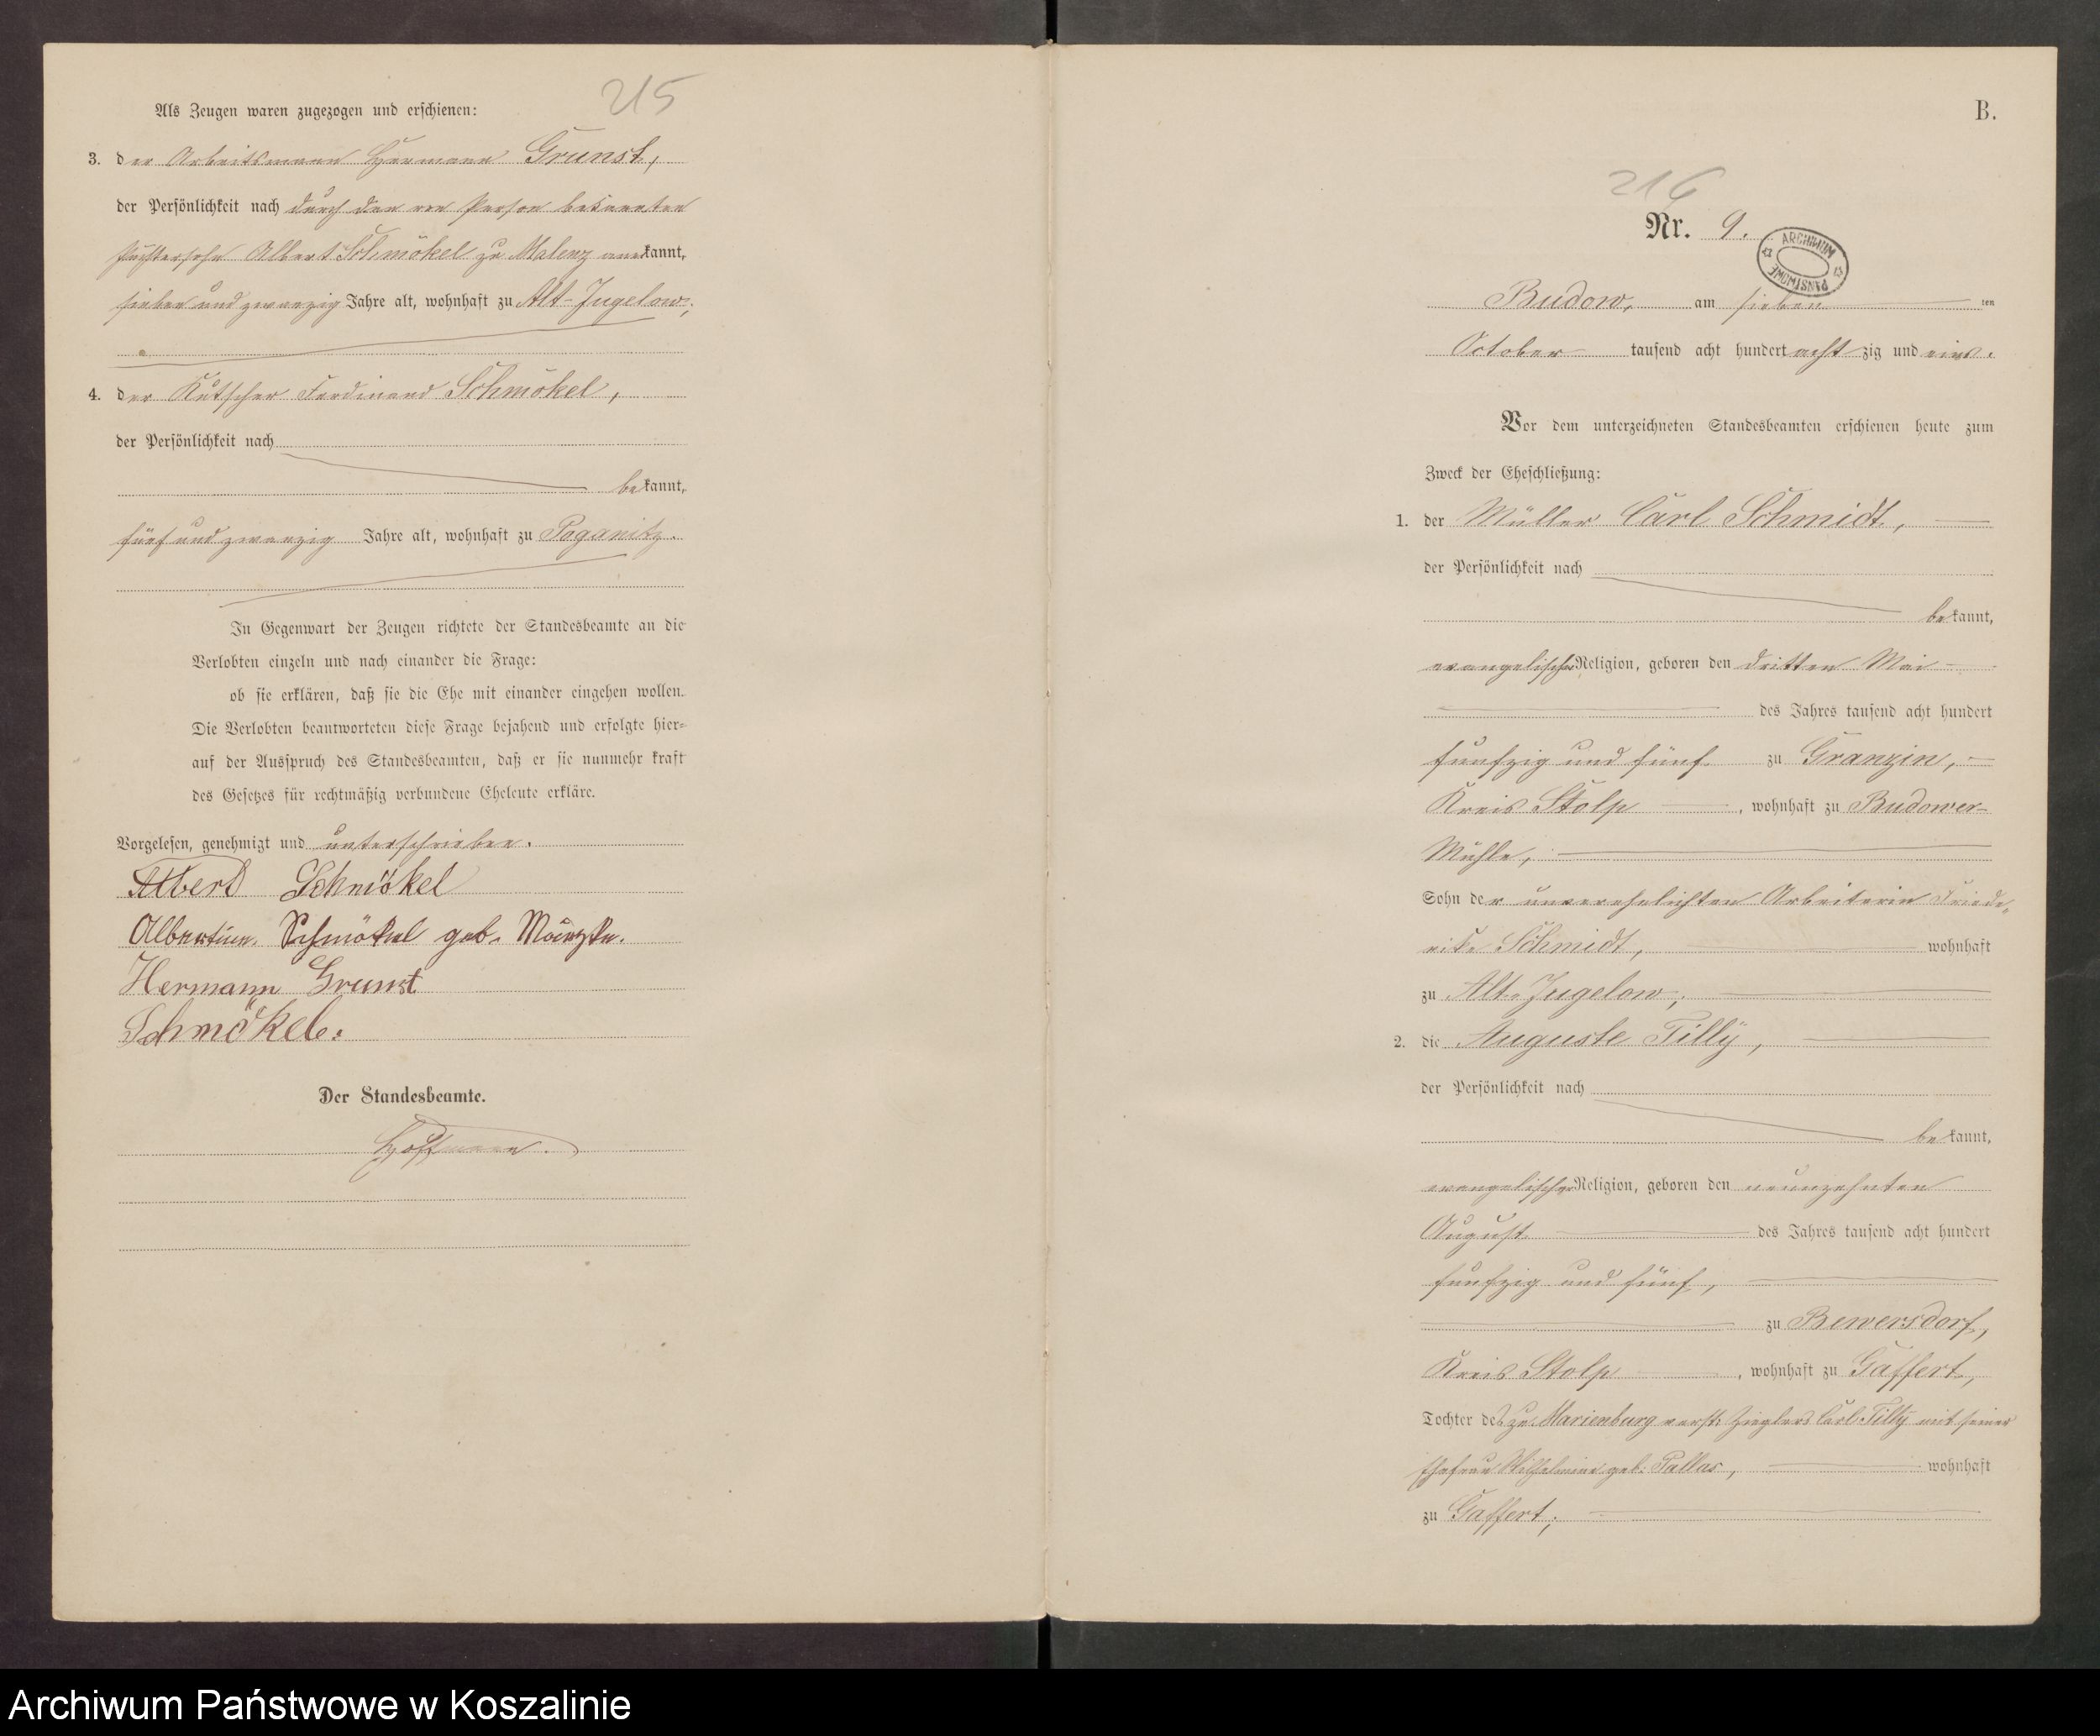 215
Als Zeugen waren zugezogen und erschienen:
3. der Arbeitsmann Hermann Grunst,
der Persönlichkeit nach durch den von Person bekannten
Albert Schmökel zu Malenz anerkannt,
sieben und zwanzig Jahre alt, wohnhaft zu Alt-Jugelow;
4. der Kutscher Ferdinand Schmökel,
der Persönlichkeit nach
bekannt,
fünf und zwanzig Jahre alt, wohnhaft zu Poganitz.
In Gegenwart der Zeugen richtete der Standesbeamte an die
Verlobten einzeln und nach einander die Frage:
ob sie erklären, daß sie die Ehe mit einander eingehen wollen.
Die Verlobten beantworteten diese Frage bejahend und erfolgte hier=
auf der Ausspruch des Standesbeamten, daß er sie nunmehr kraft
des Gesetzes für rechtmäßig verbundene Eheleute erkläre.
Vorgelesen, genehmigt und unterschrieben.
Albert Schmökel
Albertine Schmökel geb.
Hermann Grunst
Schmökel.
Der Standesbeamte.
Hoffmann.
B.
216
Nr. 9.
ARCHIWUM PAŃSTWOWE
Budow, am sieben ten
October tausend acht hundert achtzig und eins.
Vor dem unterzeichneten Standesbeamten erschienen heute zum
Zweck der Eheschließung:
1. der Müller Carl Schmidt,
der Persönlichkeit nach
bekannt,
evangelischer Religion, geboren den dritten Mai
des Jahres tausend acht hundert
funfzig und fünf zu Granzin,
Kreis Stolp, wohnhaft zu Budower-
Mühle,
Sohn der unverehelichten Arbeiterin Friede-
rike Schmidt, wohnhaft
zu Alt-Jugelow;
2. die Auguste Tilly,
der Persönlichkeit nach
bekannt,
evangelischer Religion, geboren den neunzehnten
August des Jahres tausend acht hundert
funfzig und fünf,
zu Bewersdorf,
Kreis Stolp, wohnhaft zu Gaffert,
Tochter des zu Marienburg verst. Zieglers Carl Tilly mit seiner
Ehefrau Wilhelmine geb. Pallas, wohnhaft
zu Gaffert;
Archiwum Państwowe w Koszalinie